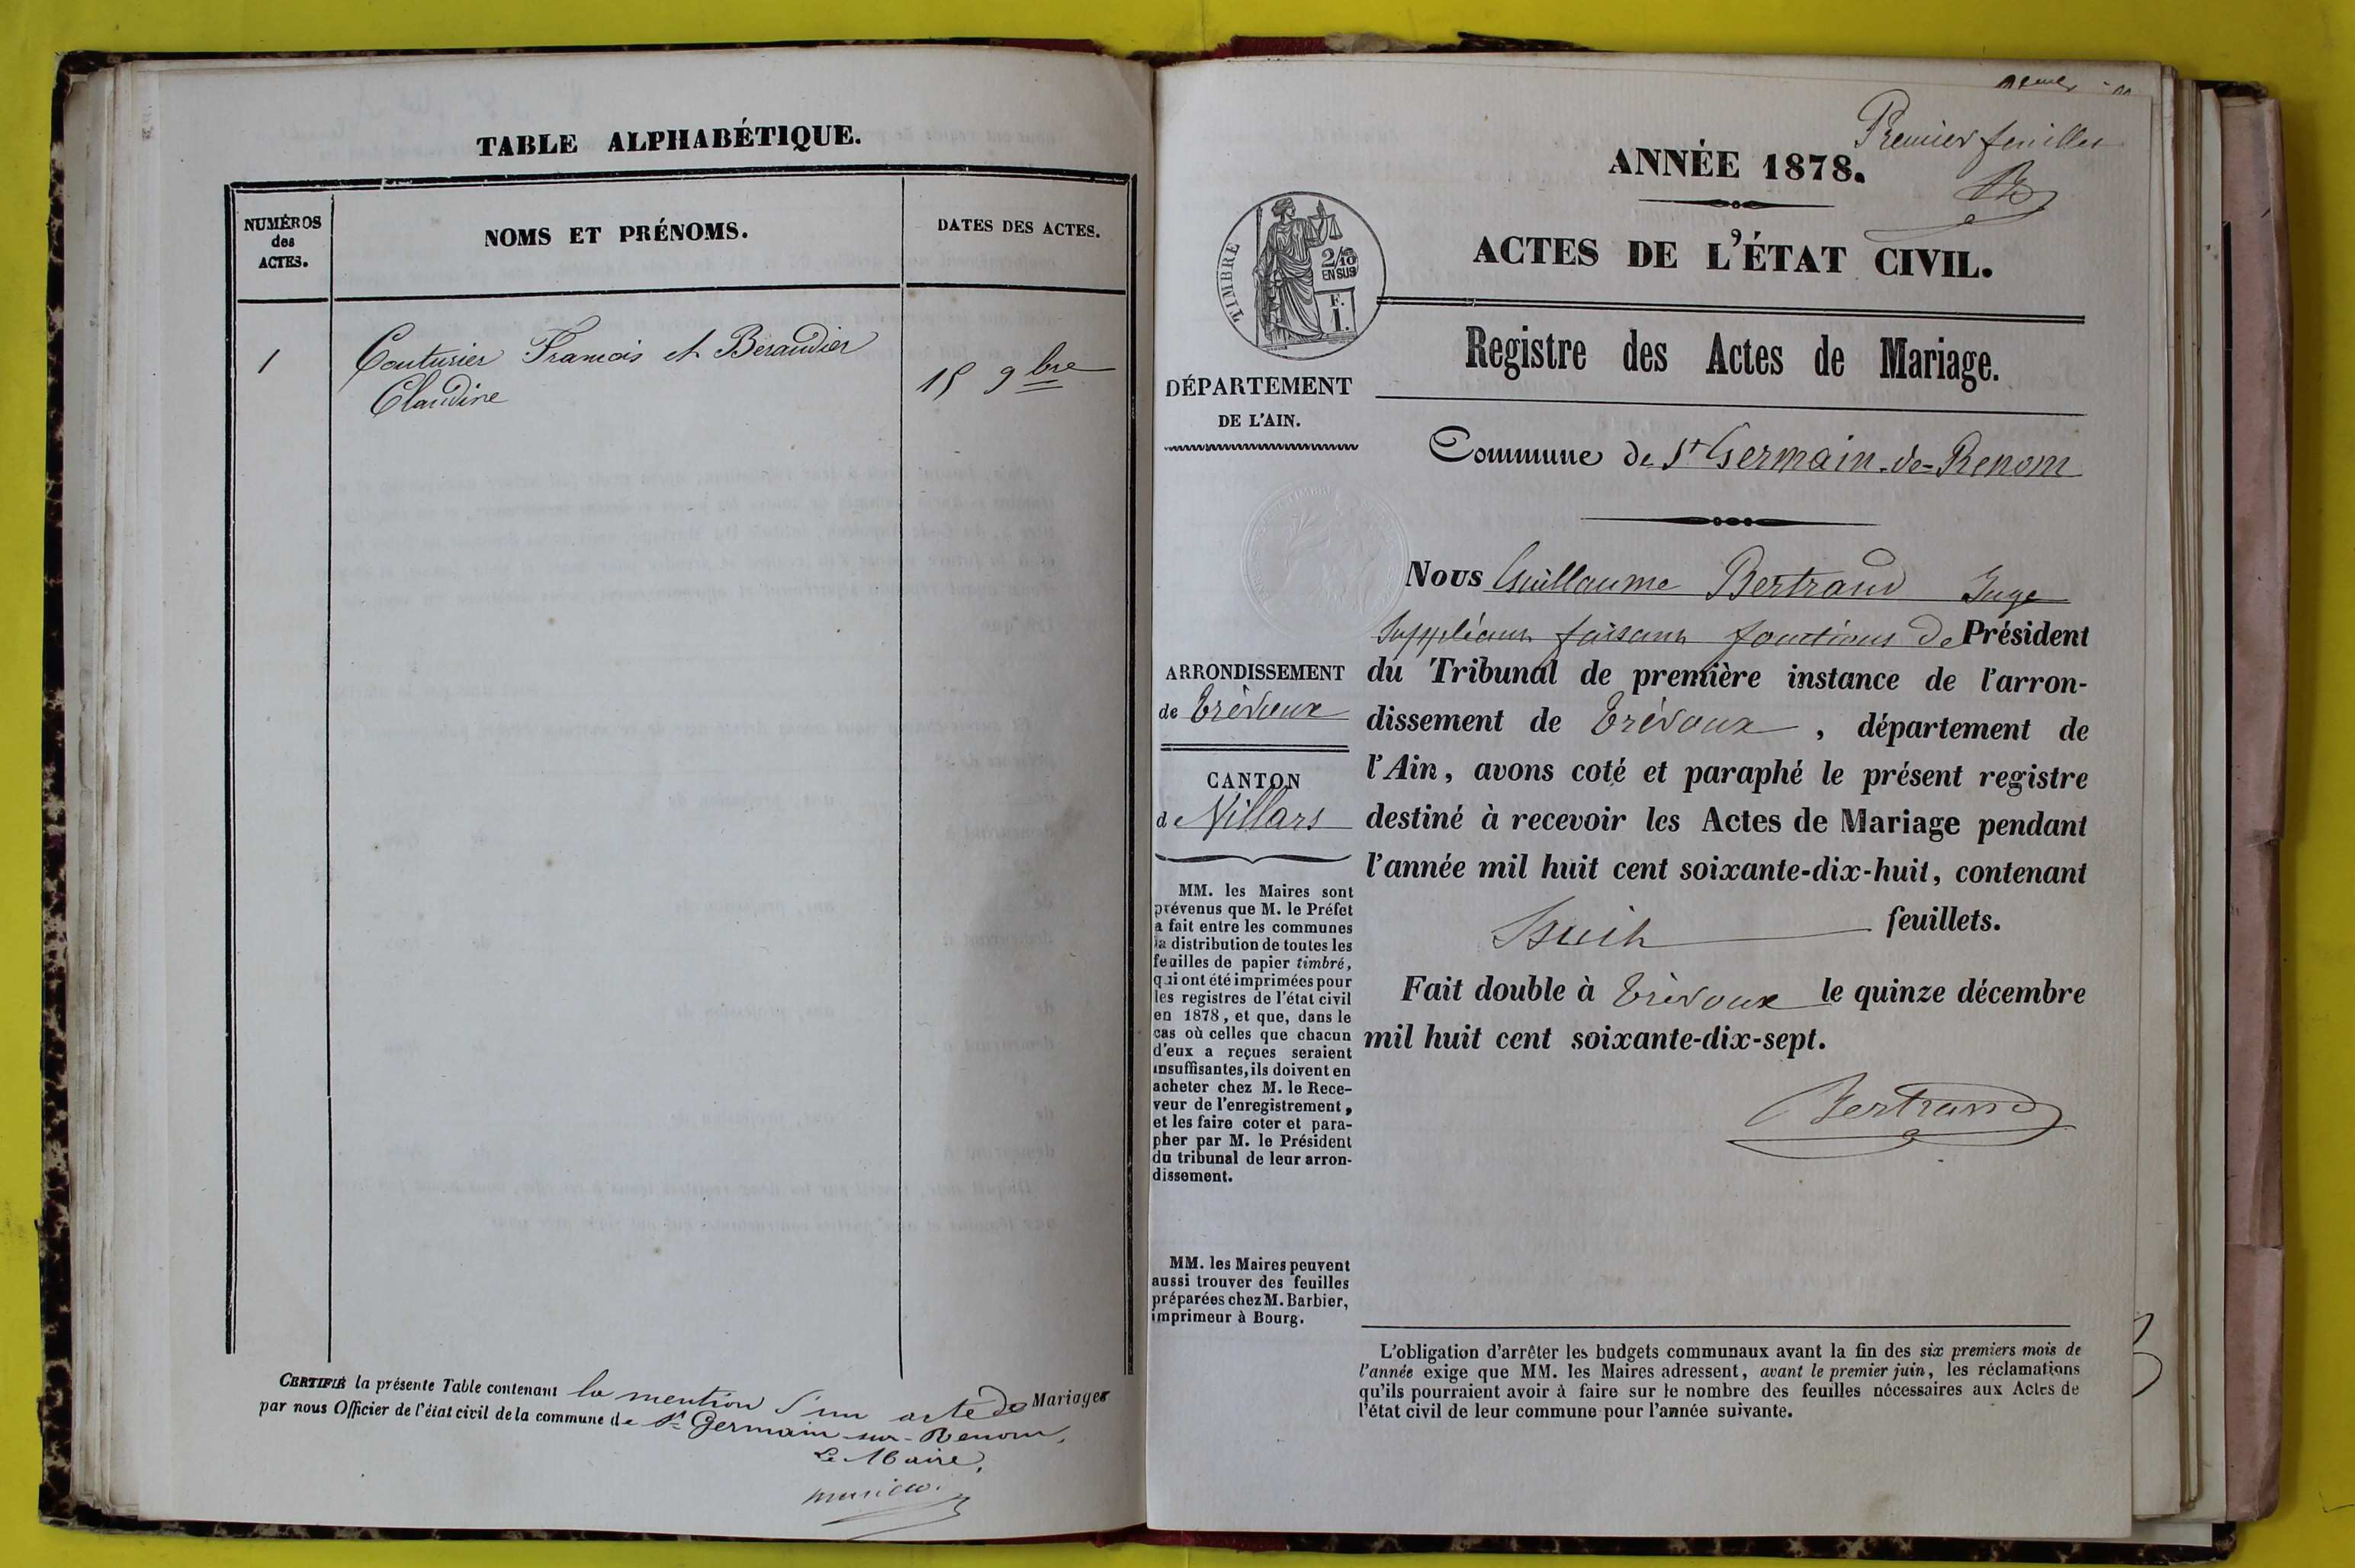 TABLE ALPHABÉTIQUE.
NUMÉROS
des
ACTES.
NOMS ET PRÉNOMS.
DATES DES ACTES.
1
Couturier François et Beraudier
Claudine
15 9bre
CERTIFIÉ la présente Table contenant la mention d'un acte de Mariages
par nous Officier de l'état civil de la commune de St Germain-sur-Renom,
Le Maire,
Premier feuillet
ANNÉE 1878.
ACTES DE L'ÉTAT CIVIL.
TIMBRE
2/10
EN SUS
F.
1.
Registre des Actes de Mariage.
DÉPARTEMENT
DE L'AIN.
Commune de St Germain-de-Renom
Nous Guillaume Bertrand Juge
Suppléant faisant fonctions de Président
du Tribunal de première instance de l'arron-
dissement de Trévoux, département de
l'Ain, avons coté et paraphé le présent registre
destiné à recevoir les Actes de Mariage pendant
l'année mil huit cent soixante-dix-huit, contenant
huit feuillets.
Fait double à Trévoux le quinze décembre
mil huit cent soixante-dix-sept.
Bertrand
ARRONDISSEMENT
de Trévoux
CANTON
de Villars
MM. les Maires sont
prévenus que M. le Préfet
a fait entre les communes
la distribution de toutes les
feuilles de papier timbré,
qui ont été imprimées pour
les registres de l'état civil
en 1878, et que, dans le
cas où celles que chacun
d'eux a reçues seraient
insuffisantes, ils doivent en
acheter chez M. le Rece-
veur de l'enregistrement,
et les faire coter et para-
pher par M. le Président
du tribunal de leur arron-
dissement.
MM. les Maires peuvent
aussi trouver des feuilles
préparées chez M. Barbier,
imprimeur à Bourg.
L'obligation d'arrêter les budgets communaux avant la fin des six premiers mois de
l'année exige que MM. les Maires adressent, avant le premier juin, les réclamations
qu'ils pourraient avoir à faire sur le nombre des feuilles nécessaires aux Actes de
l'état civil de leur commune pour l'année suivante.